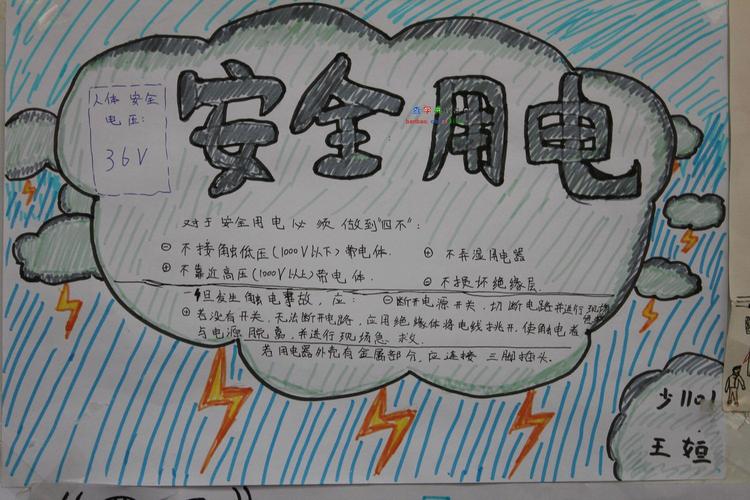 安全用电
人体 安全
电压:
36V
对于安全用电必须做到"四不":
⊖ 不接触低压(1000V以下)带电体. ⊕ 不弄湿用电器
⊕ 不靠近高压(1000V以上)带电体. ⊕ 不损坏绝缘层.
一旦发生触电事故,应: ⊖断开电源开关,切断电路并进行现场
⊕ 若没有开关,无法断开电路,应用绝缘体将电线挑开,使触电者
与电源脱离,并进行现场急救.
若用电器外壳有金属部分,应连接三脚插头.
少1101
王姮